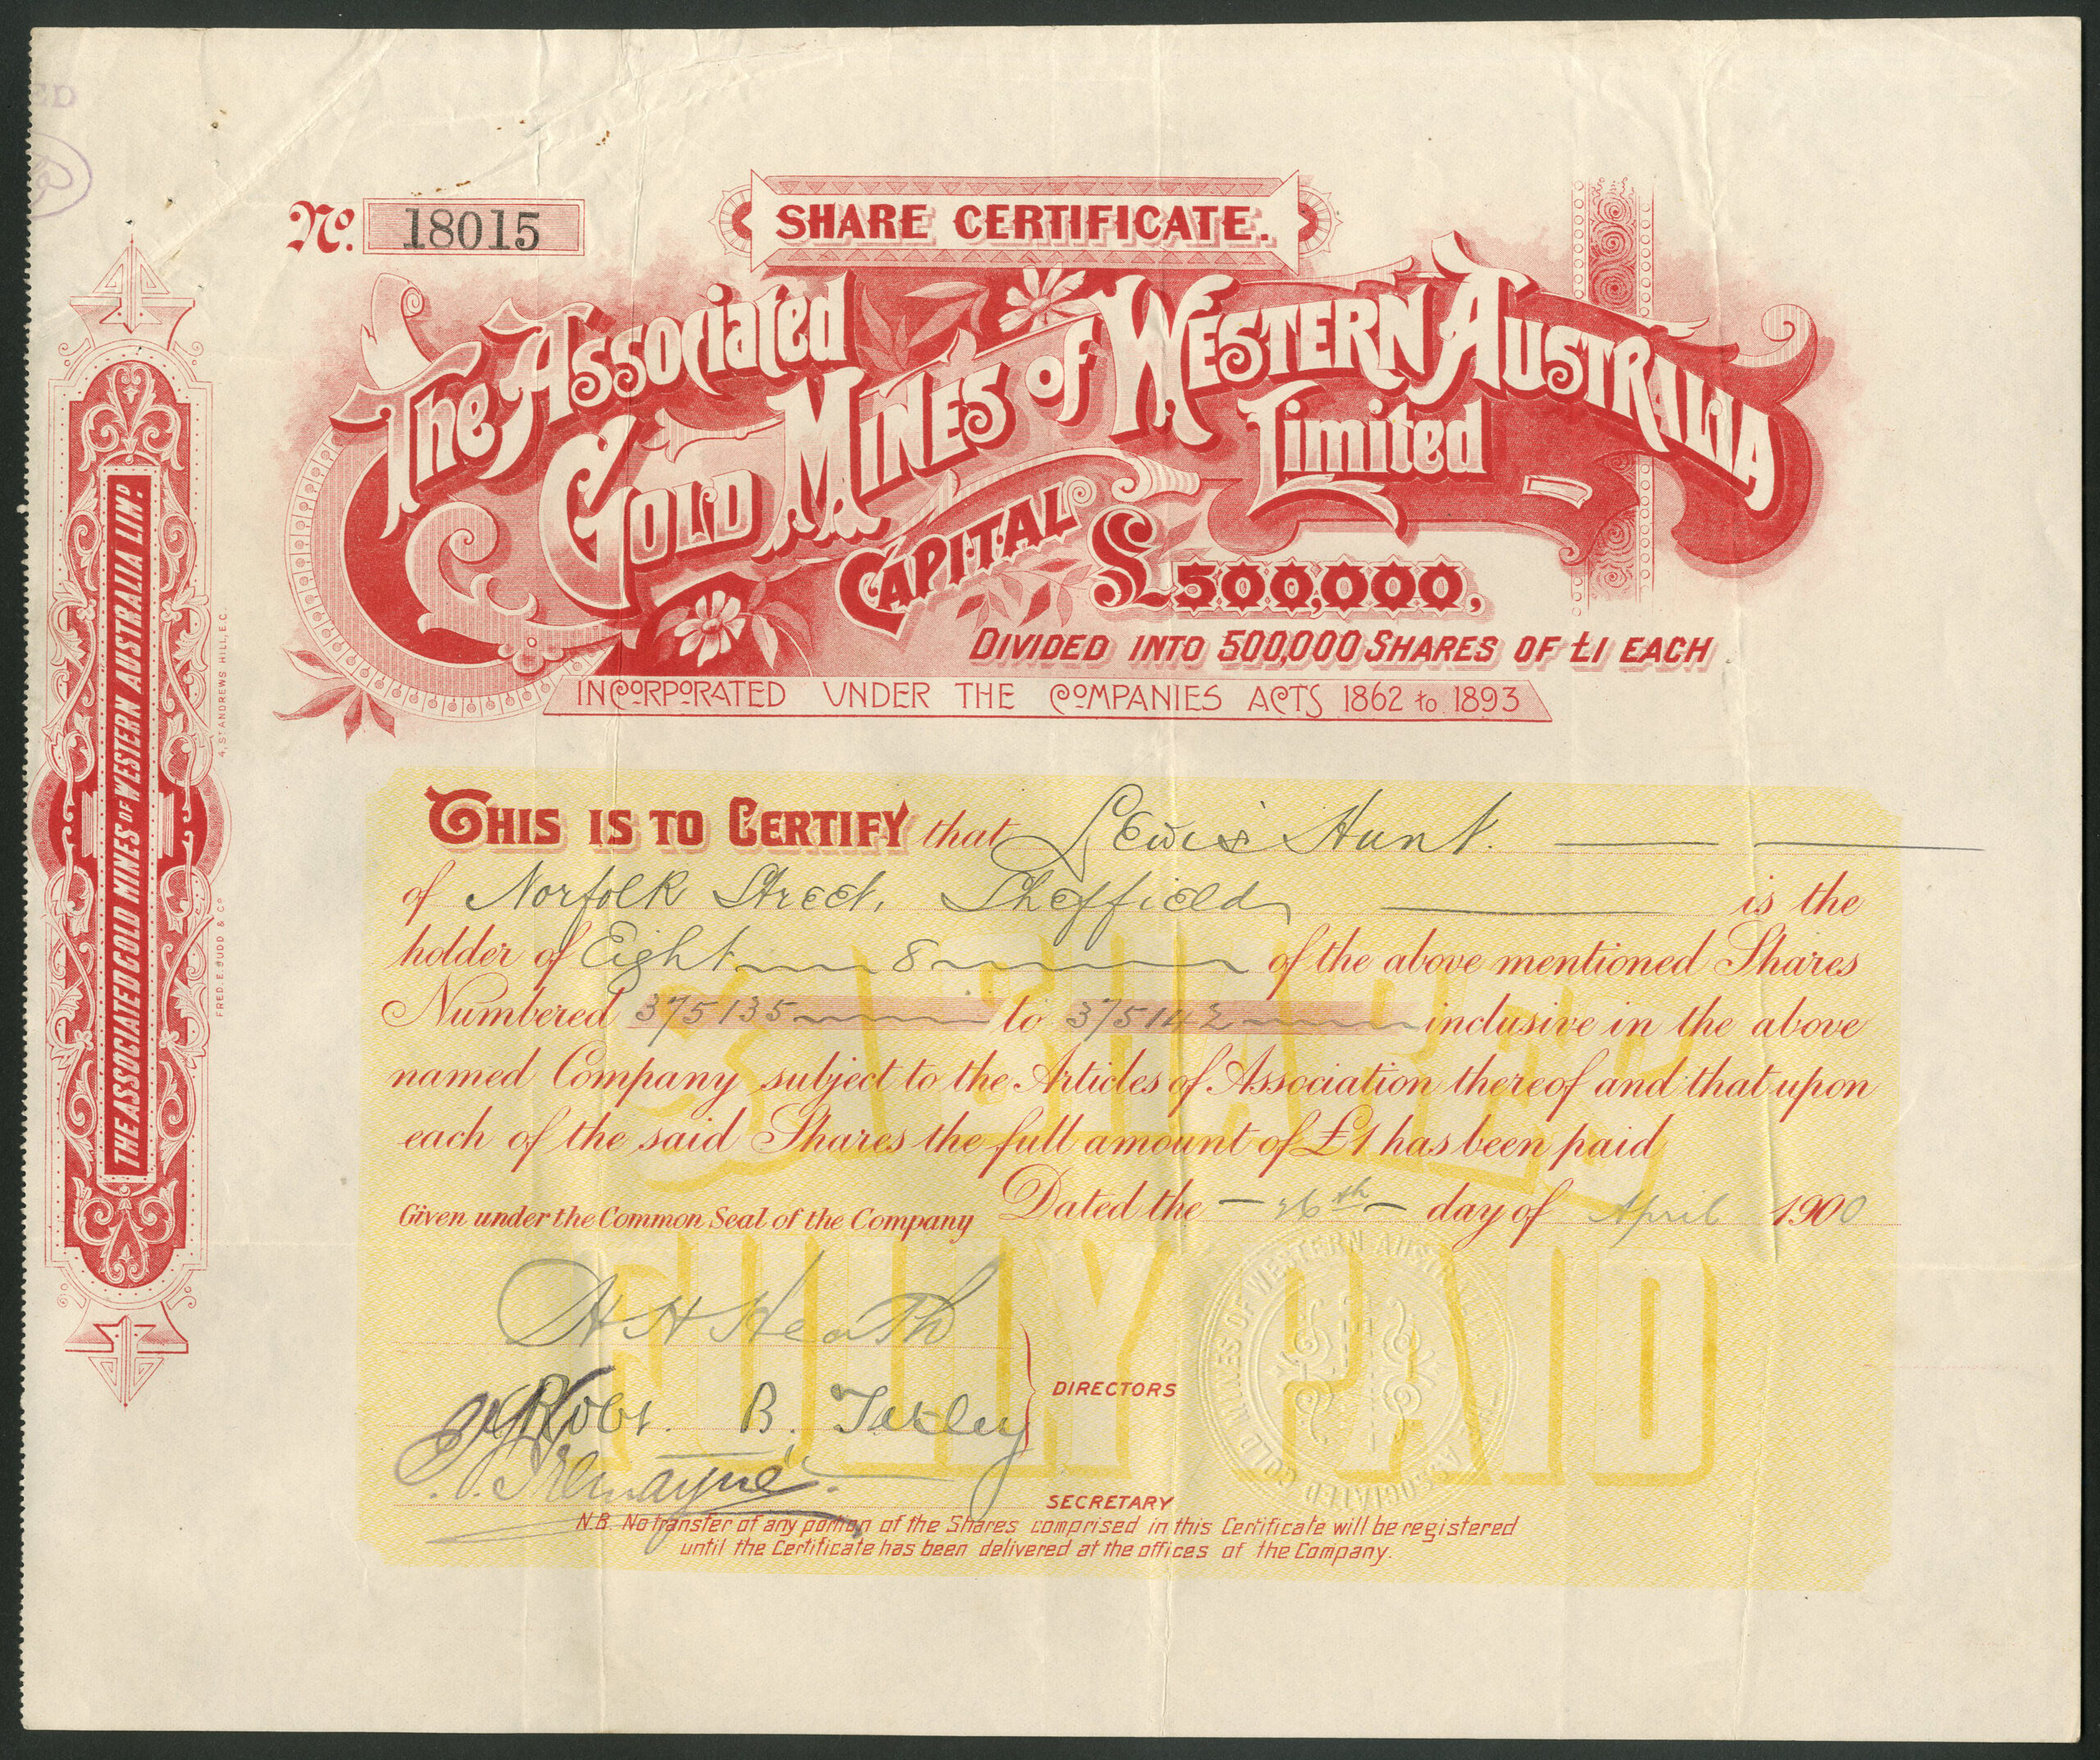 ED
SHARE CERTIFICATE.
No. 18015
The Associated
Gold Mines of Western Australia
Limited
CAPITAL £500,000,
DIVIDED INTO 500,000 SHARES OF £1 EACH
INCORPORATED UNDER THE COMPANIES ACTS 1862 to 1893
THIS IS TO CERTIFY that Lewis Hunt.
of Norfolk Street, Sheffield is the
holder of Eight 8 of the above mentioned Shares
Numbered 375135 to 375142 inclusive in the above
named Company subject to the Articles of Association thereof and that upon
each of the said Shares the full amount of £1 has been paid
Dated the 26th day of April 1900
Given under the Common Seal of the Company
H H Heath
Robt. B.
DIRECTORS
SECRETARY
N.B. No transfer of any portion of the Shares comprised in this Certificate will be registered
until the Certificate has been delivered at the offices of the Company.
SHARES
FULLY PAID
ASSOCIATED GOLD MINES OF WESTERN AUSTRALIA
THE ASSOCIATED GOLD MINES OF WESTERN AUSTRALIA LIMD.
FRED. E. BUDD & Co 4, ST ANDREWS HILL, E.C.